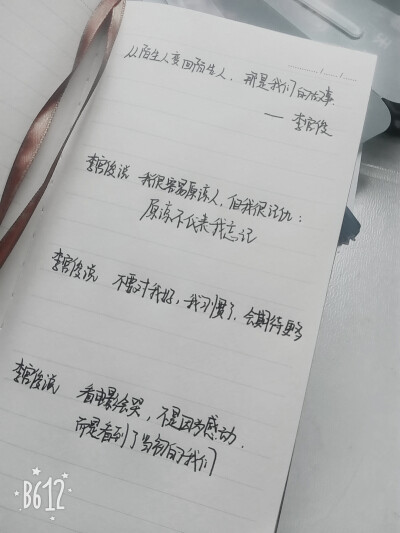 从陌生人变回陌生人，那是我们的故事.
——李宫俊
李宫俊说 我很容易原谅人，但我很记仇：
原谅不代表我忘记
李宫俊说 不要对我好，我习惯了，会期待更多
李宫俊说 看电影会哭，不是因为感动.
而是看到了当初的我们
B612